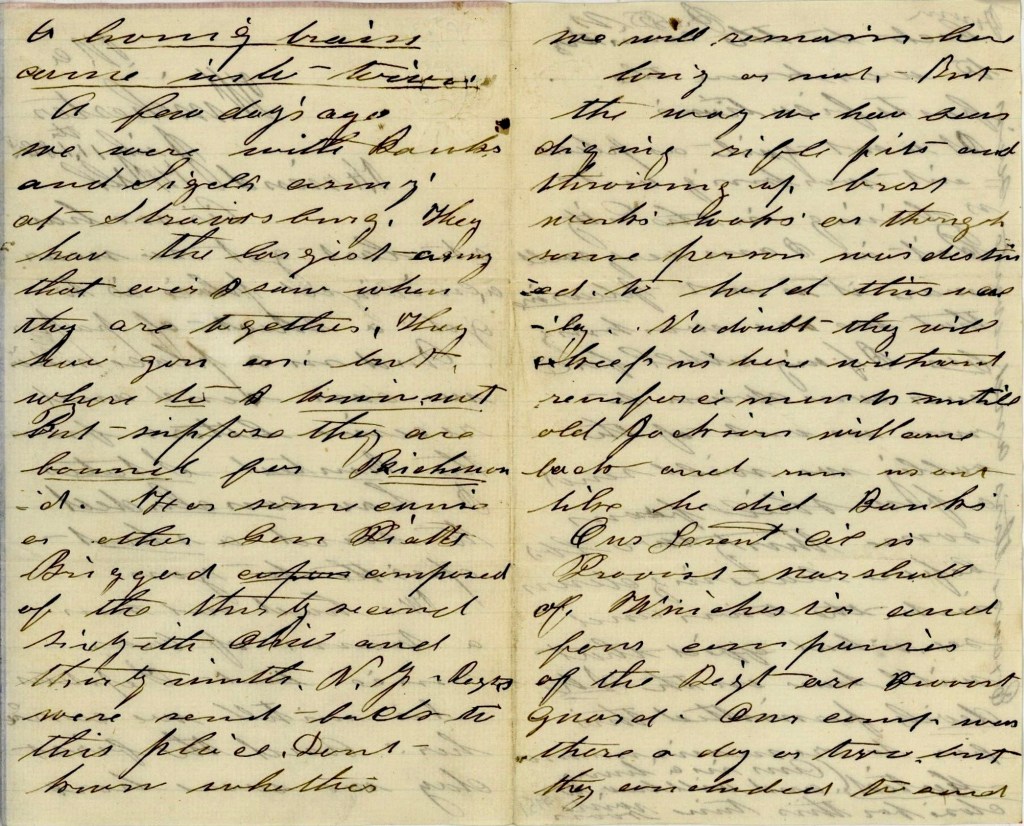 a homeig train
came into town
A few day's ago
we were with Banks
and Sigels army
at Strawsburg. They
hav the largist army
that ever I saw when
they are togethir. They
hav gon on. but.
where to I know not
But suppose they are
bound for Richmon
-d. For some cause
or other Gen Piatts
Briggad composed
of the thirty second
sixtieth Ohio and
thirty ninth. N. Y. Regts
were send back to
this place. Dont
know whether
we will remain here
long or not. But
the way we hav been
diging rifle pits and
throwing up brest
works looks as though
some person was destin
ed. to hold this vae
-ley. No doubt they will
keep us here without
reinforcements untill
old Jackson will come
back and run us out
like he did Banks
Our Leut Col is
Provist Marshall
of. Winchester and
four companies
of the Regt are provist
guard. Our comp was
there a day or two. but
they concluded to send